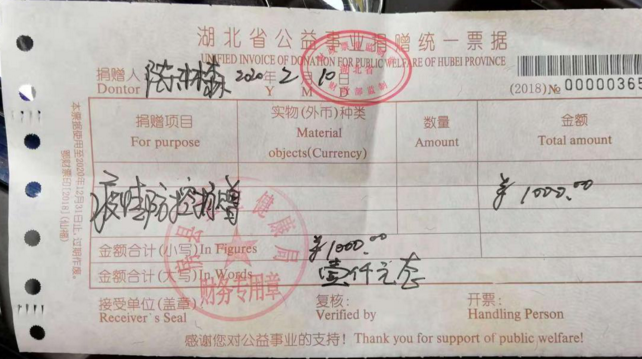 湖北省公益事业捐赠统一票据
UNIFIED INVOICE OF DONATION FOR PUBLIC WELFARE OF HUBEI PROVINCE
捐赠人 2020年2月10日
Dontor Y M
(2018)№ 00000365
捐赠项目 实物(外币)种类 数量 金额
For purpose Material objects(Currency) Amount Total amount
疫情防控捐增 ¥1000.00
金额合计(小写)In Figures ¥1000.00
金额合计(大写)In Words 壹仟元
接受单位(盖章) 复核: 开票:
Receiver's Seal Verified by Handling Person
感谢您对公益事业的支持! Thank you for support of public welfare!
湖北省
健康局
财务专用章